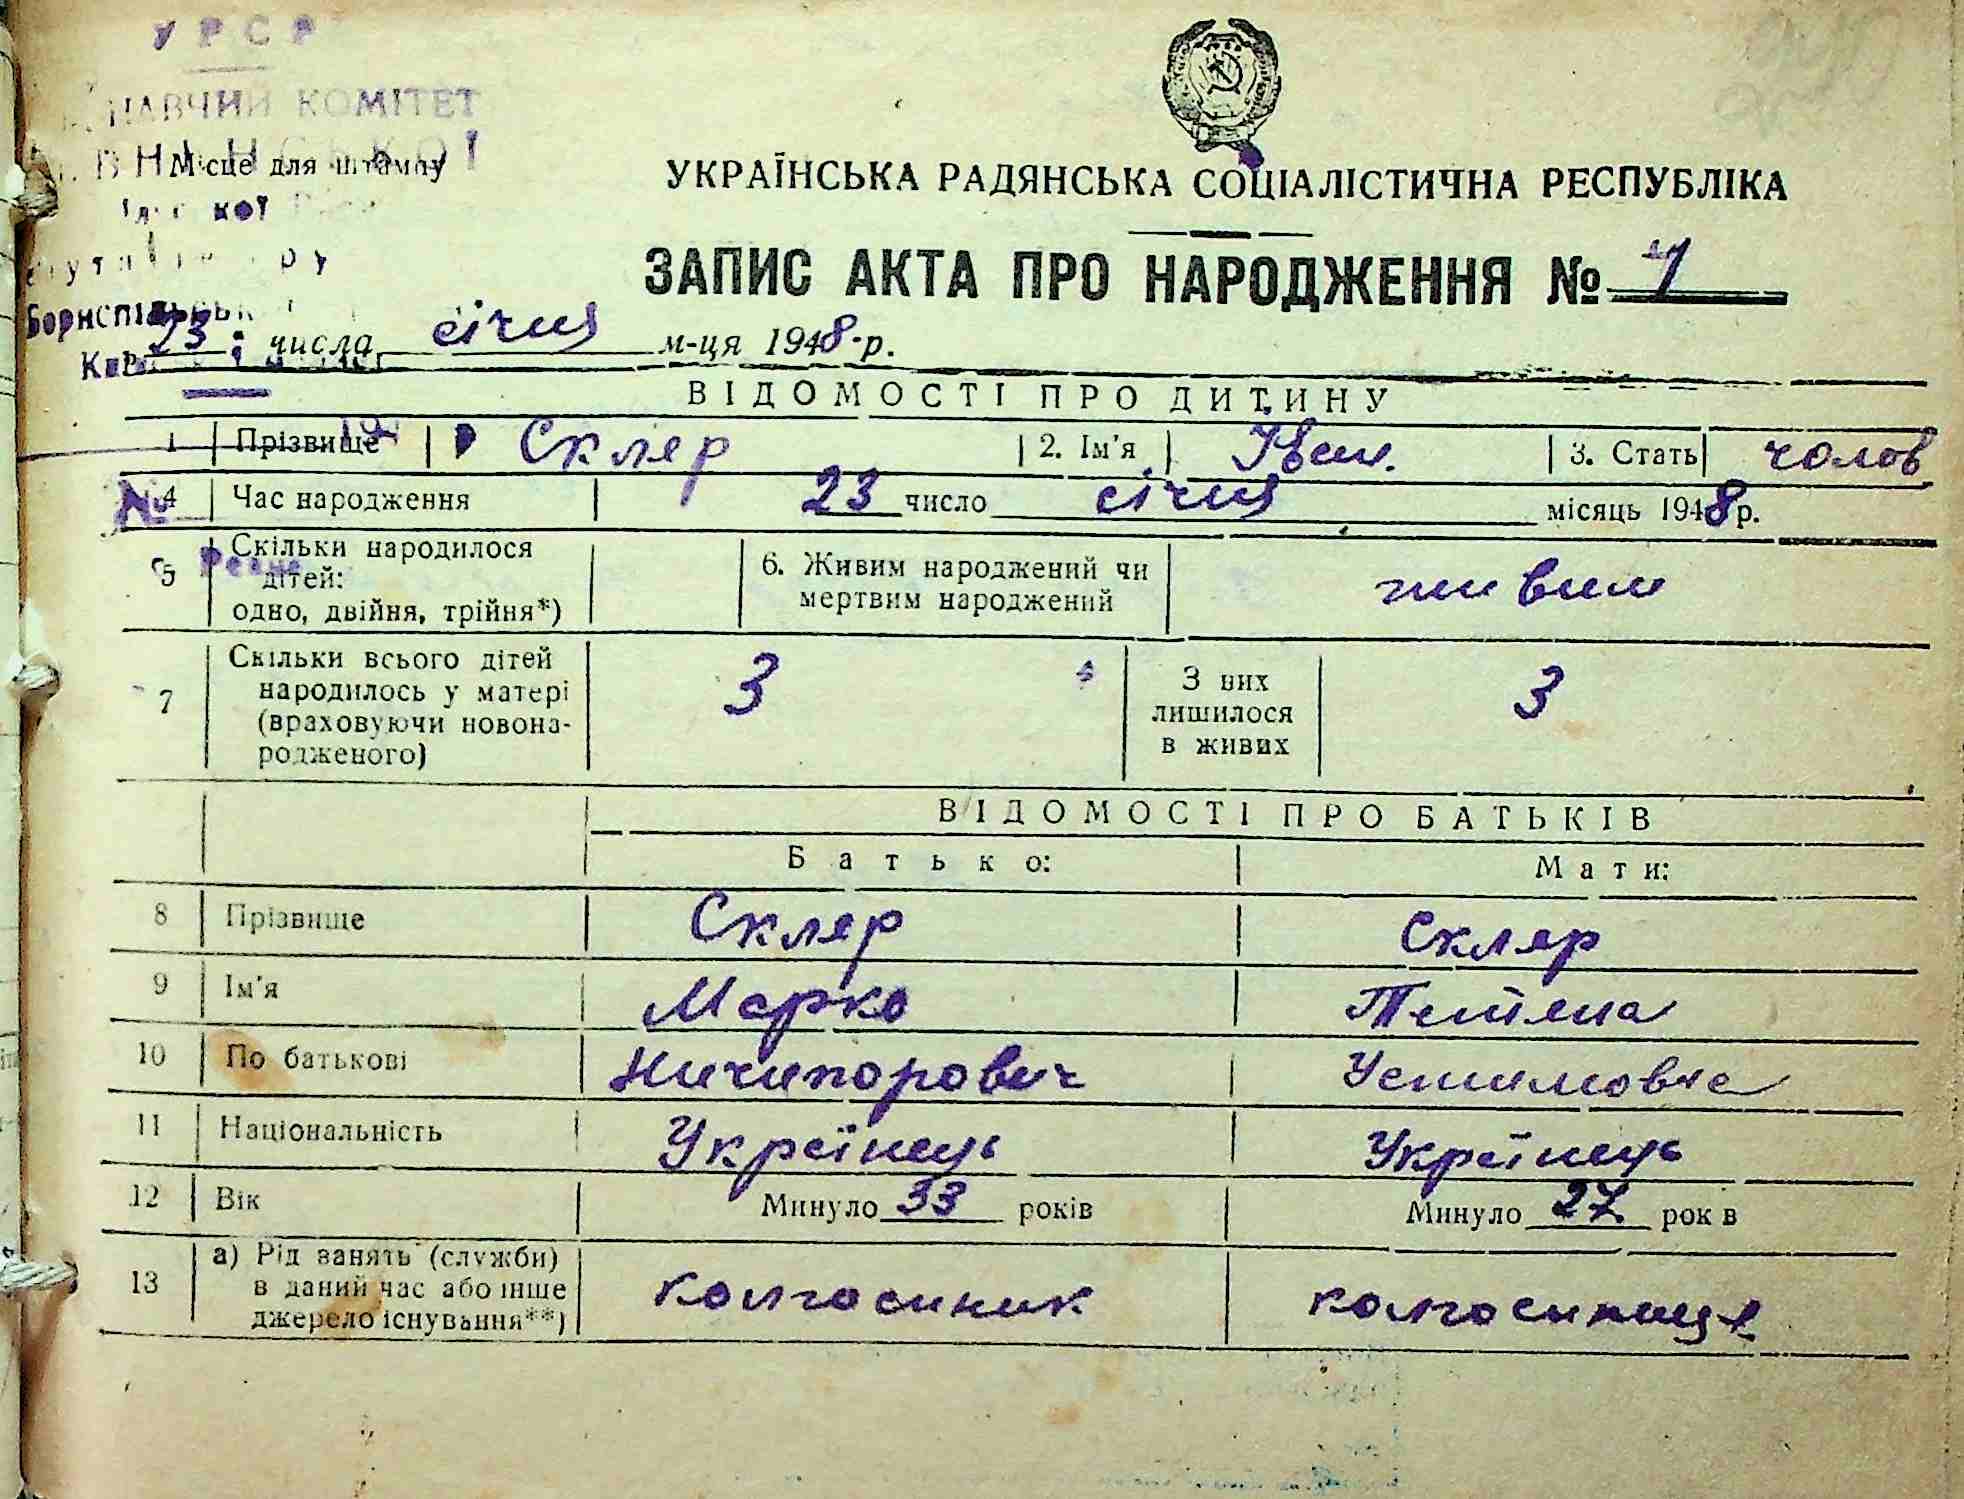 УРСР
КОМІТЕТ
Місце для штампу
УКРАЇНСЬКА РАДЯНСЬКА СОЦІАЛІСТИЧНА РЕСПУБЛІКА
ЗАПИС АКТА ПРО НАРОДЖЕННЯ №
23 числа січня м-ця 1948-р.
ВІДОМОСТІ ПРО ДИТИНУ
1 Прізвище Скляр 2. Ім'я Іван. 3. Стать чолов
4 Час народження 23 число січня місяць 1948 р.
5 Скільки народилося дітей: одно, двійня, трійня*) 6. Живим народжений чи мертвим народжений живим
7 Скільки всього дітей народилось у матері (враховуючи новонародженого) 3 З них лишилося в живих 3
ВІДОМОСТІ ПРО БАТЬКІВ
Батько: Мати:
8 Прізвище Скляр Скляр
9 Ім'я Марко Тетяна
10 По батькові Ничипорович Устимовна
11 Національність Українець Українець
12 Вік Минуло 33 років Минуло 27 рок в
13 а) Рід занять (служби) в даний час або інше джерело існування**) колгоспник колгоспниця